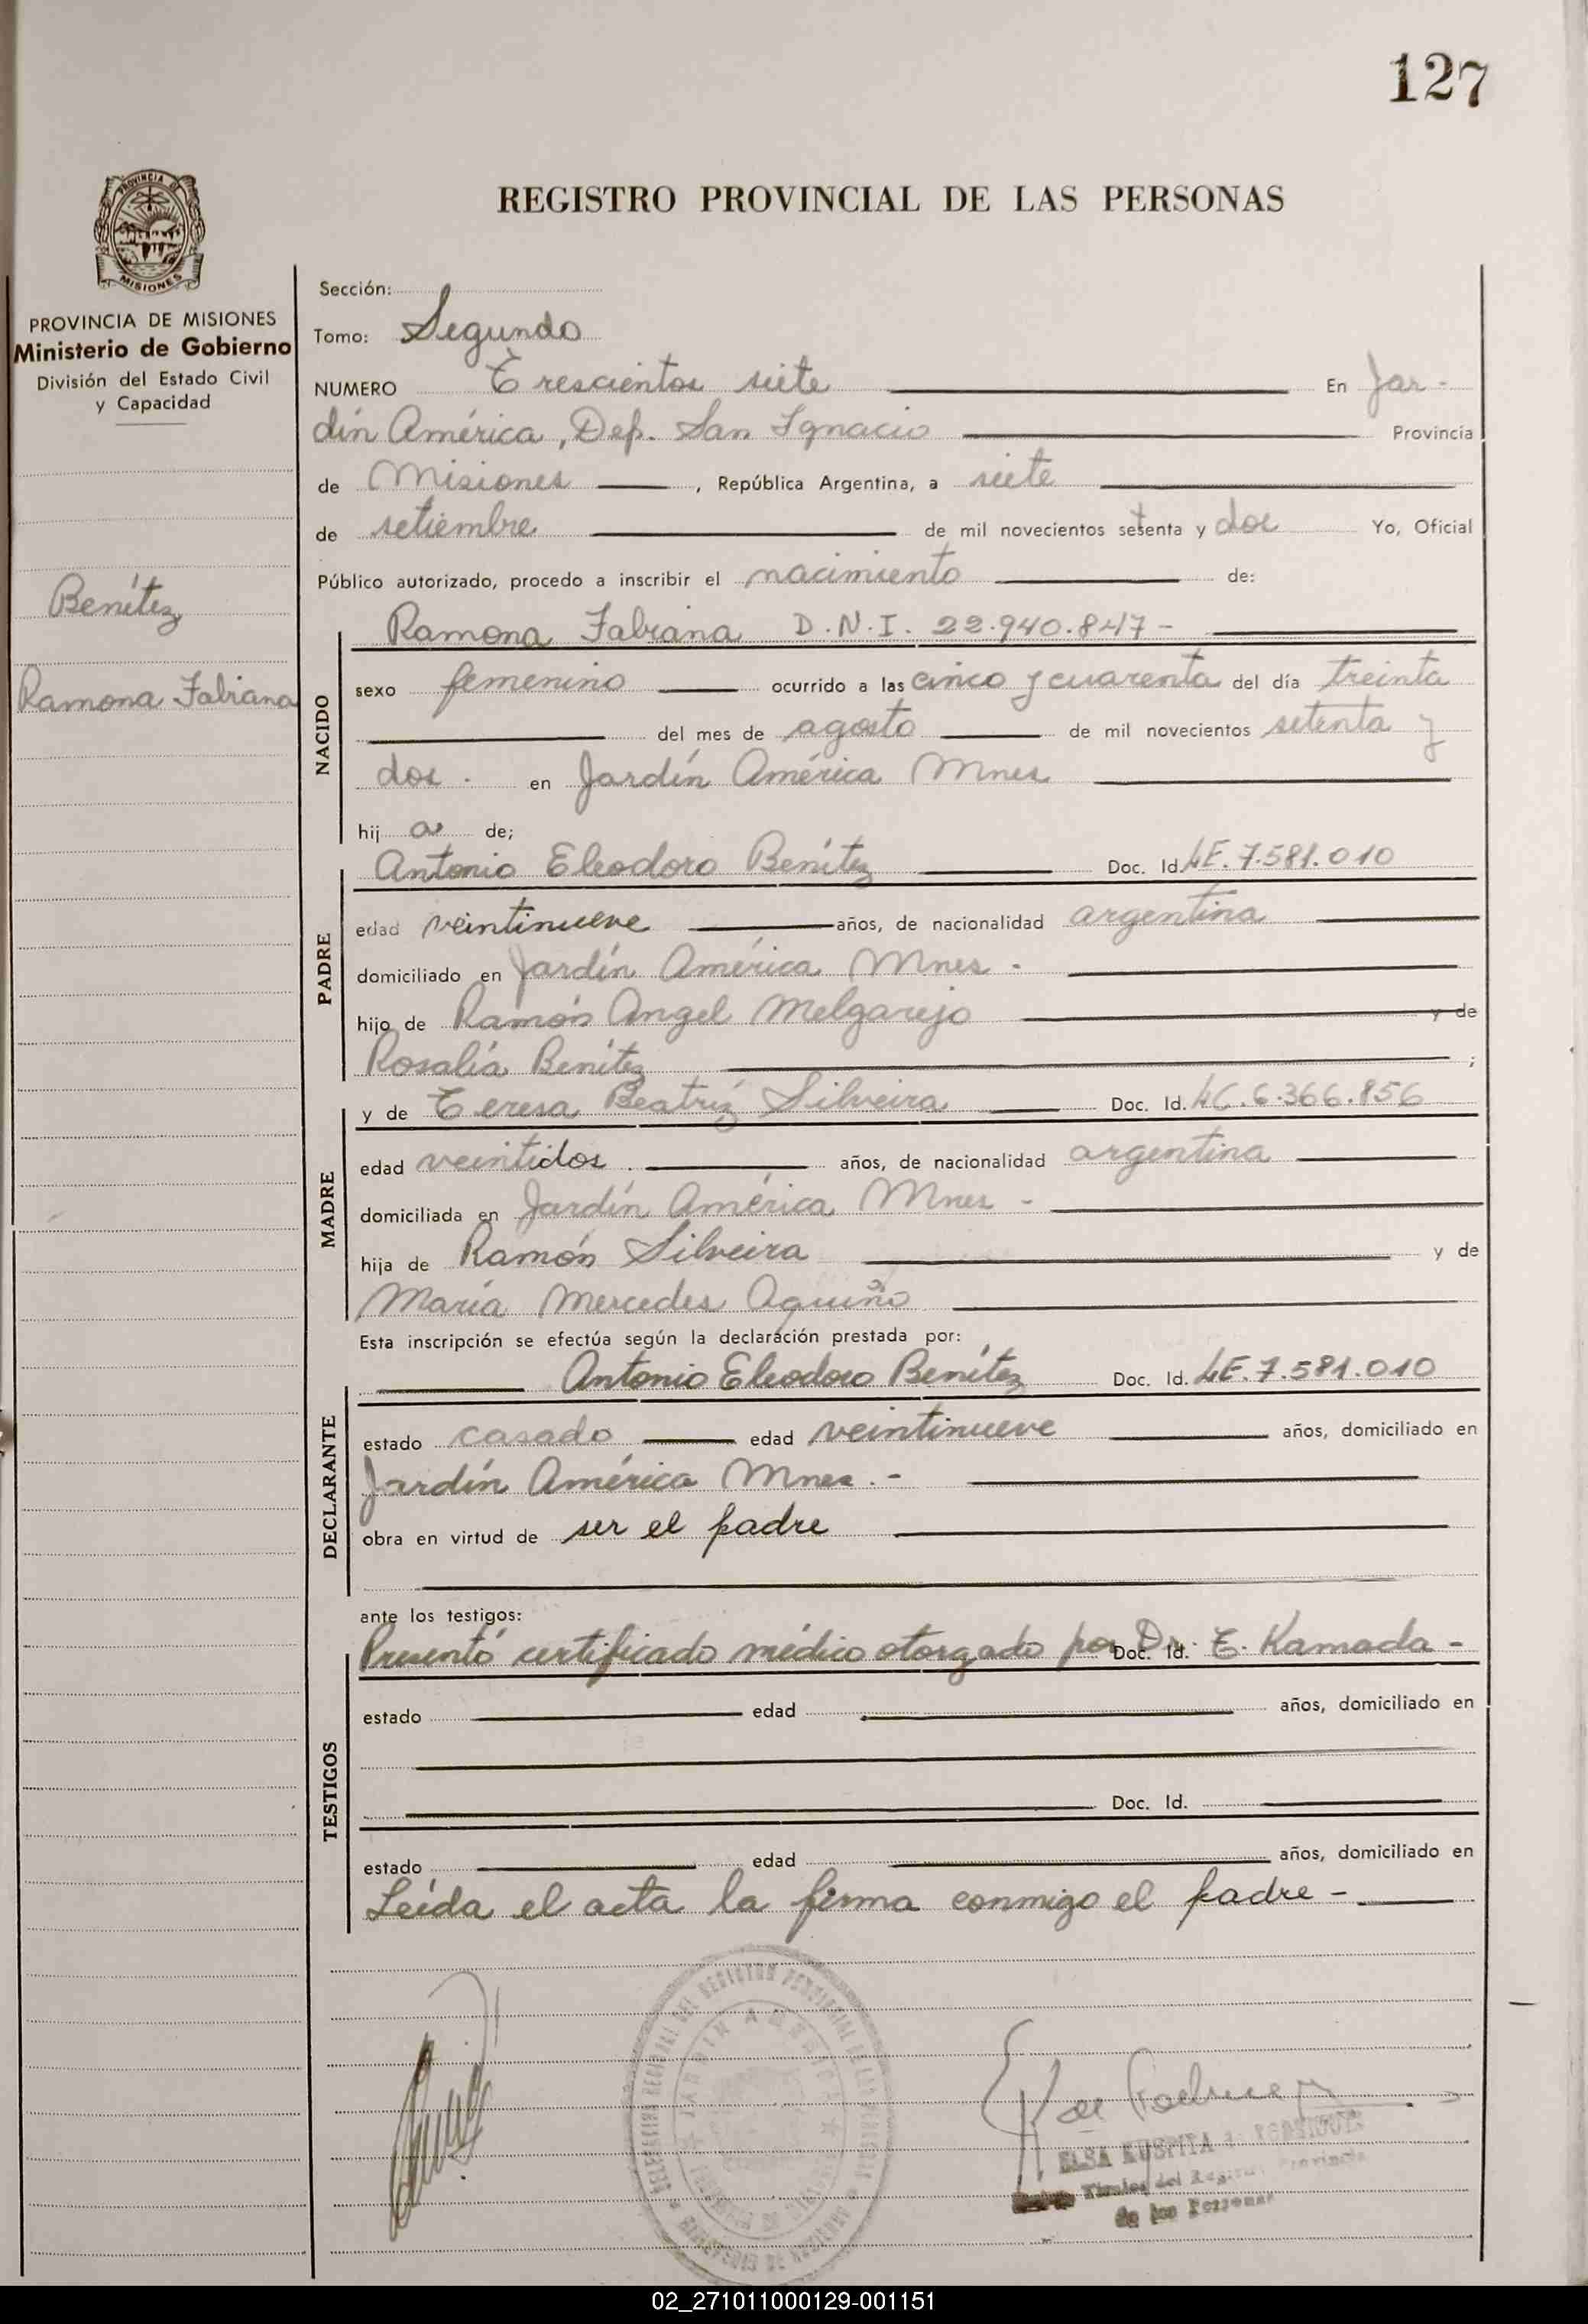 127
PROVINCIA DE
MISIONES
REGISTRO PROVINCIAL DE LAS PERSONAS
PROVINCIA DE MISIONES
Ministerio de Gobierno
División del Estado Civil
y Capacidad
Benítez
Ramona Fabiana
Sección:
Tomo: Segundo
NUMERO Trescientos siete En Jar-
dín América, Dep. San Ignacio Provincia
de Misiones , República Argentina, a siete
de setiembre de mil novecientos setenta y dos Yo, Oficial
Público autorizado, procedo a inscribir el nacimiento de:
NACIDO
Ramona Fabiana D.N.I. 22.940.847-
sexo femenino ocurrido a las cinco y cuarenta del día treinta
del mes de agosto de mil novecientos setenta y
dos. en Jardín América Mnes
hij a de;
PADRE
Antonio Eleodoro Benítez Doc. Id. LE.7.581.010
edad veintinueve años, de nacionalidad argentina
domiciliado en Jardín América Mnes -
hijo de Ramón Angel Melgarejo y de
Rosalía Benítez ;
MADRE
y de Teresa Beatríz Silveira Doc. Id. LC.6.366.856
edad veintidos. años, de nacionalidad argentina
domiciliada en Jardín América Mnes -
hija de Ramón Silveira y de
María Mercedes Aquiño
Esta inscripción se efectúa según la declaración prestada por:
DECLARANTE
Antonio Eleodoro Benítez Doc. Id. LE.7.581.010
estado casado edad veintinueve años, domiciliado en
Jardín América Mnes.-
obra en virtud de ser el padre
ante los testigos:
TESTIGOS
Presentó certificado médico otorgado por Doc. Id. Dr. T. Kamada-
estado edad años, domiciliado en
Doc. Id.
estado edad años, domiciliado en
Leída el acta la firma conmigo el padre-
JARDIN AMERICA
ELSA
de las Personas
02_271011000129-001151